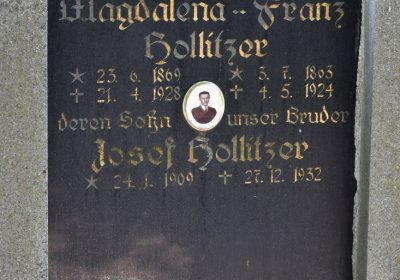 Magdalena -- Franz
Hollitzer
* 23. 6. 1869 * 3. 7. 1863
+ 21. 4. 1928 + 4. 5. 1924
deren Sohn unser Bruder
Josef Hollitzer
* 24. 1. 1909 + 27. 12. 1932